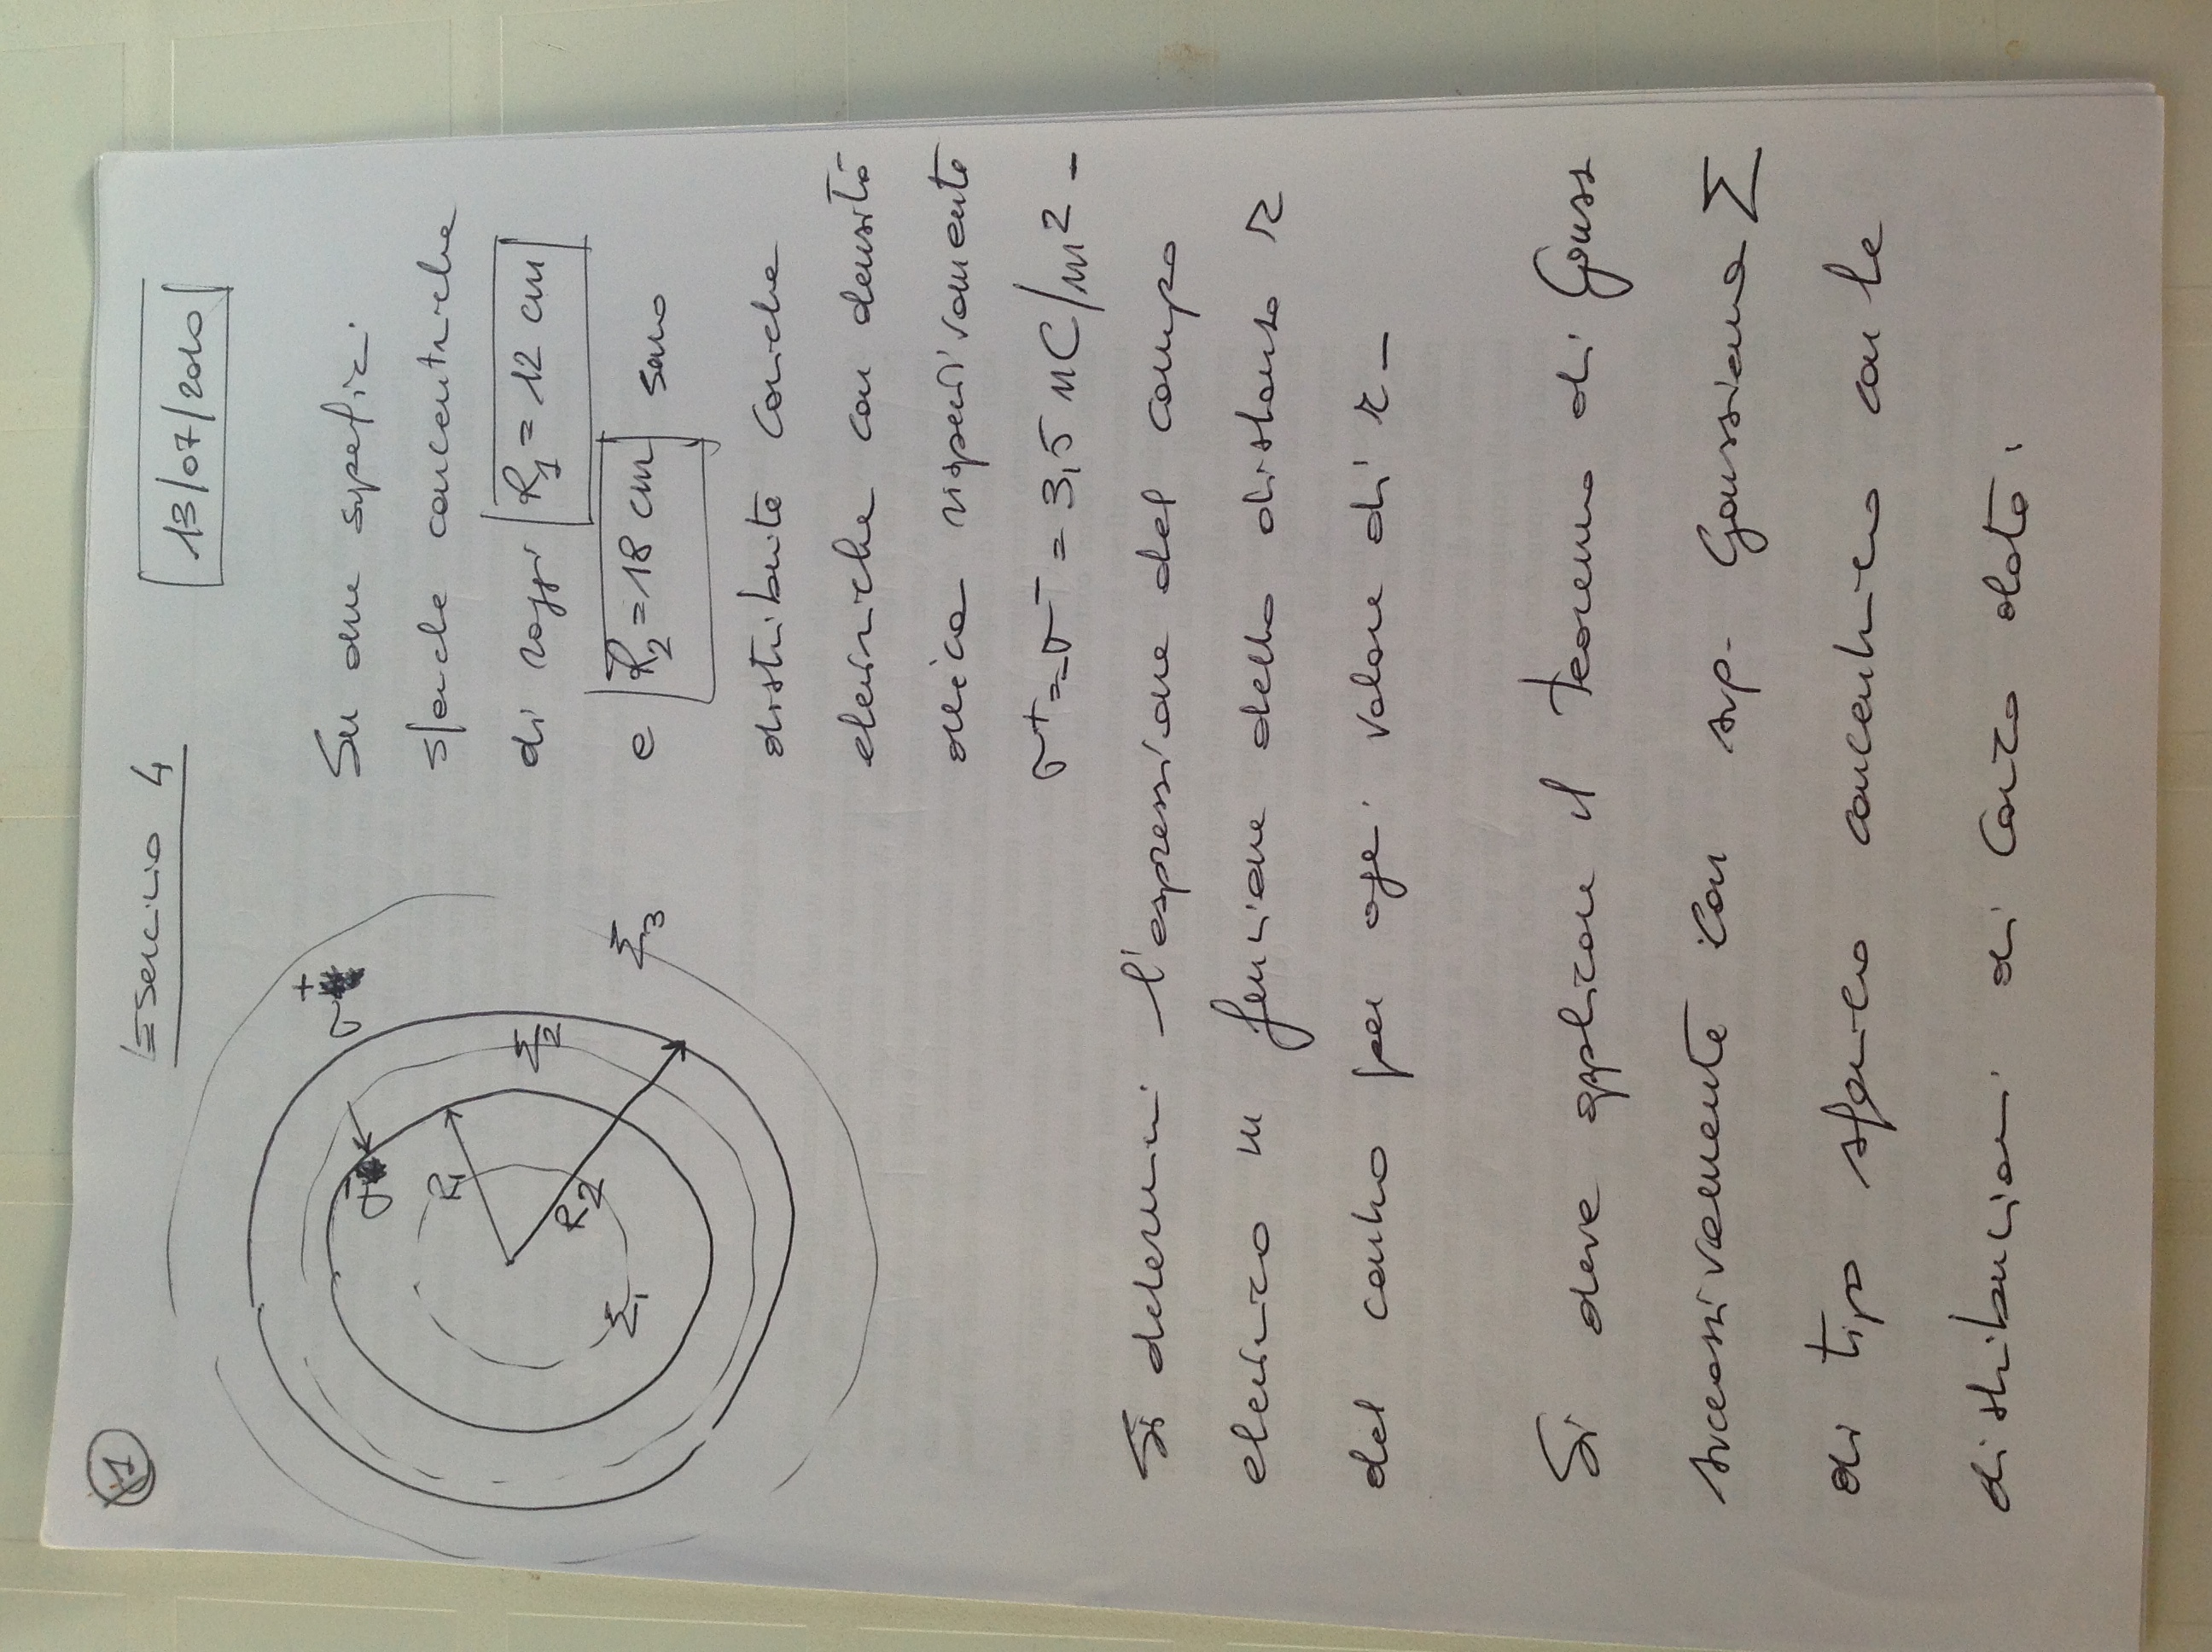 1
Esercizio 4
13/07/2010
σ-
σ+
R1
R2
Σ1
Σ2
Σ3
Su due superfici
sferiche concentriche
di raggi R1 = 12 cm
e R2 = 18 cm sono
distribuite cariche
elettriche con densità
rispettivamente
σ+ = -σ- = 3,5 nC/m2 -
Si determini l'espressione del campo
elettrico in funzione della distanza r
dal centro per ogni valore di r -
Si deve applicare il teorema di Gauss
successivamente con sup. Gaussiana Σ
di tipo sferico concentrico con le
distribuzioni di carica date: